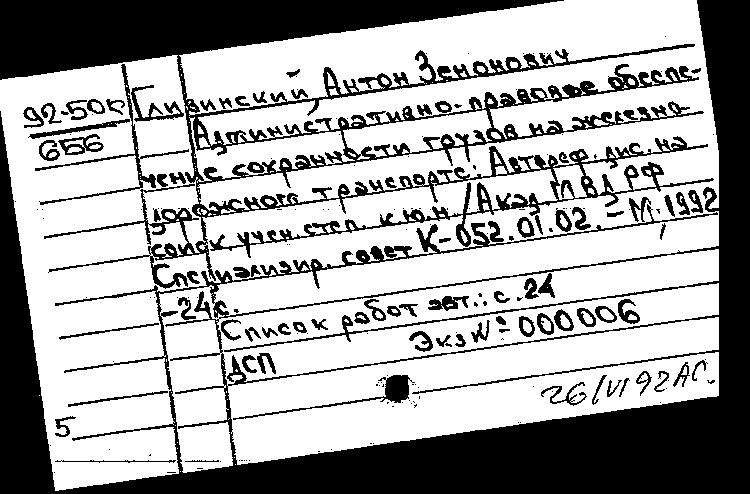 92-50к
656
Гливинский, Антон Зенонович
Административно-правовое обеспе-
чение сохранности грузов на железно-
дорожном транспорте: Автореф. дис. на
соиск. учен. степ. к.ю.н. / Акад. МВД РФ
Специализир. совет К-052.01.02. - М., 1992
-24с.
Список работ авт.: с. 24
ДСП Экз № 000006
26/VI 92 АС.
5